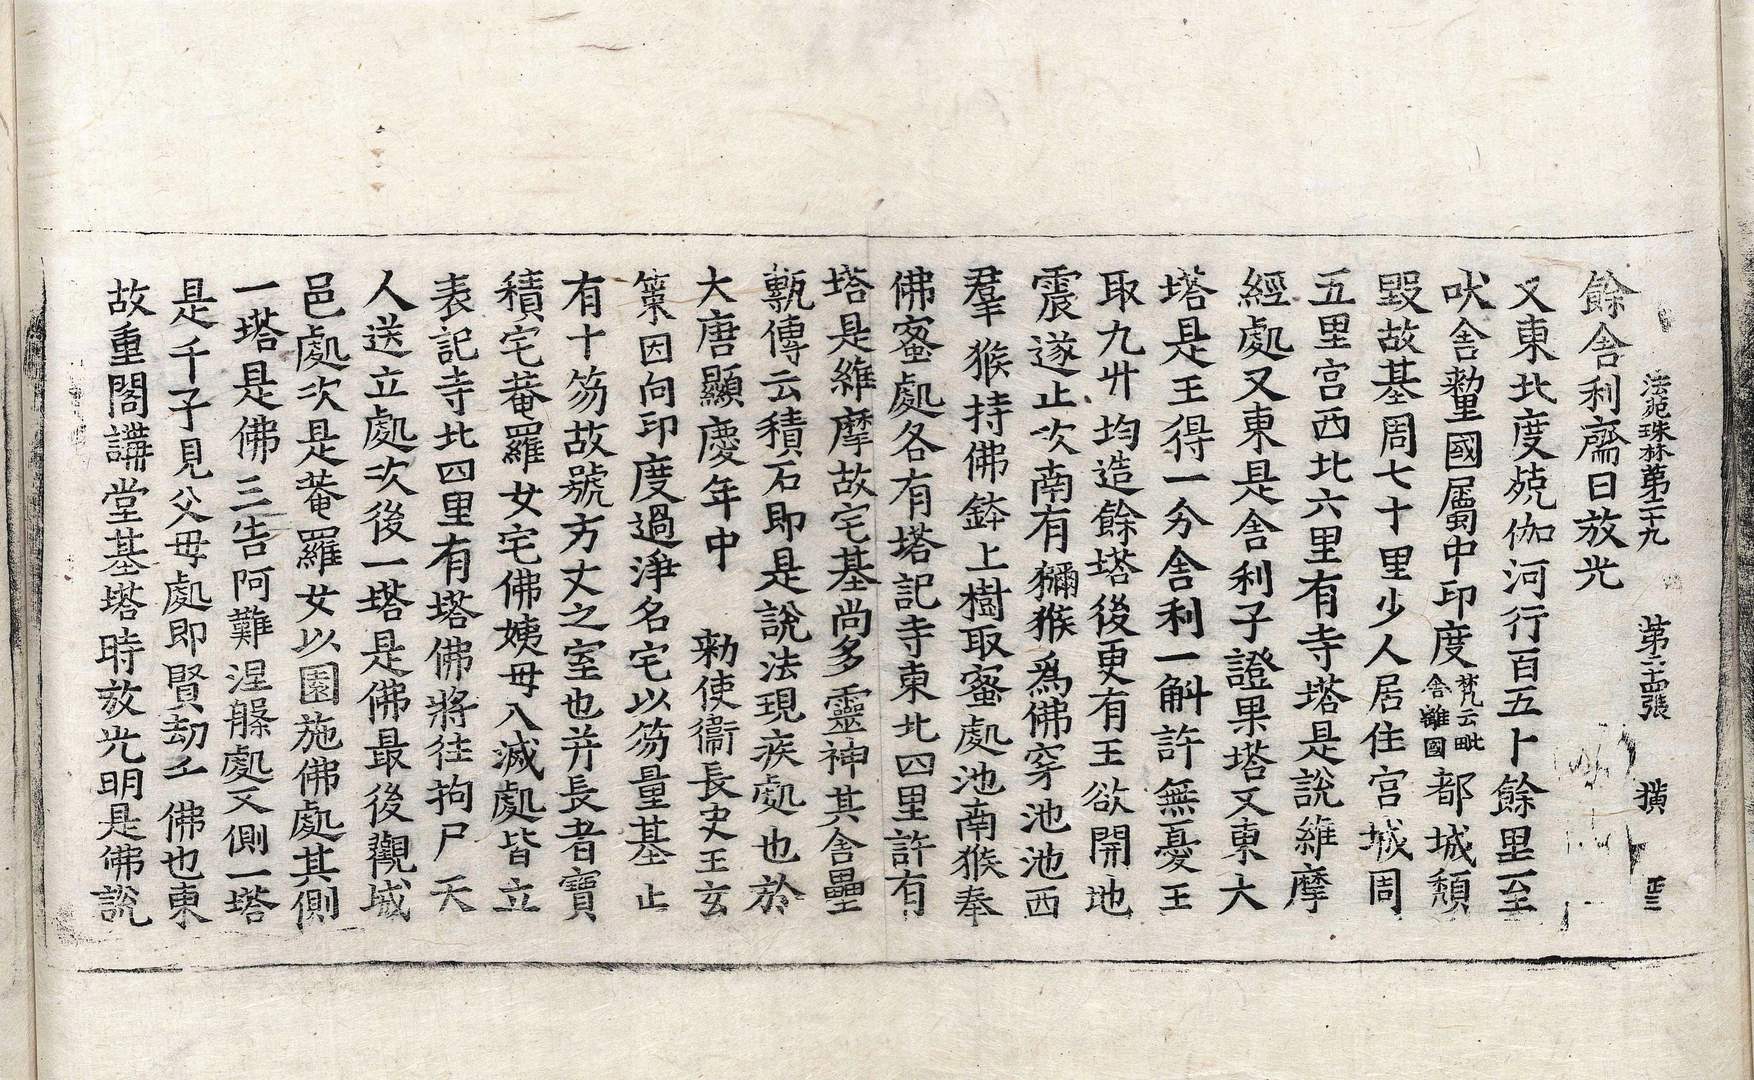 法苑珠林第二十九　第二十四張　橫
餘舍利齋日放光
又東北度殑伽河行百五十餘里至
吠舍釐國屬中印度梵云毗舍離國都城頹
毀故基周七十里少人居住宮城周
五里宮西北六里有寺塔是說維摩
經處又東是舍利子證果塔又東大
塔是王得一分舍利一斛許無憂王
取九廾均造餘塔後更有王欲開地
震遂止次南有獼猴爲佛穿池池西
羣猴持佛鉢上樹取蜜處池南猴奉
佛蜜處各有塔記寺東北四里許有
塔是維摩故宅基尚多靈神其舍壘
甎傳云積石即是說法現疾處也於
大唐顯慶年中　勑使衞長史王玄
策因向印度過淨名宅以笏量基止
有十笏故號方丈之室也并長者寶
積宅菴羅女宅佛姨母入滅處皆立
表記寺北四里有塔佛將往拘尸天
人送立處次後一塔是佛最後觀城
邑處次是菴羅女以園施佛處其側
一塔是佛三告阿難涅槃處又側一塔
是千子見父母處即賢劫千佛也東
故重閣講堂基塔時放光明是佛說